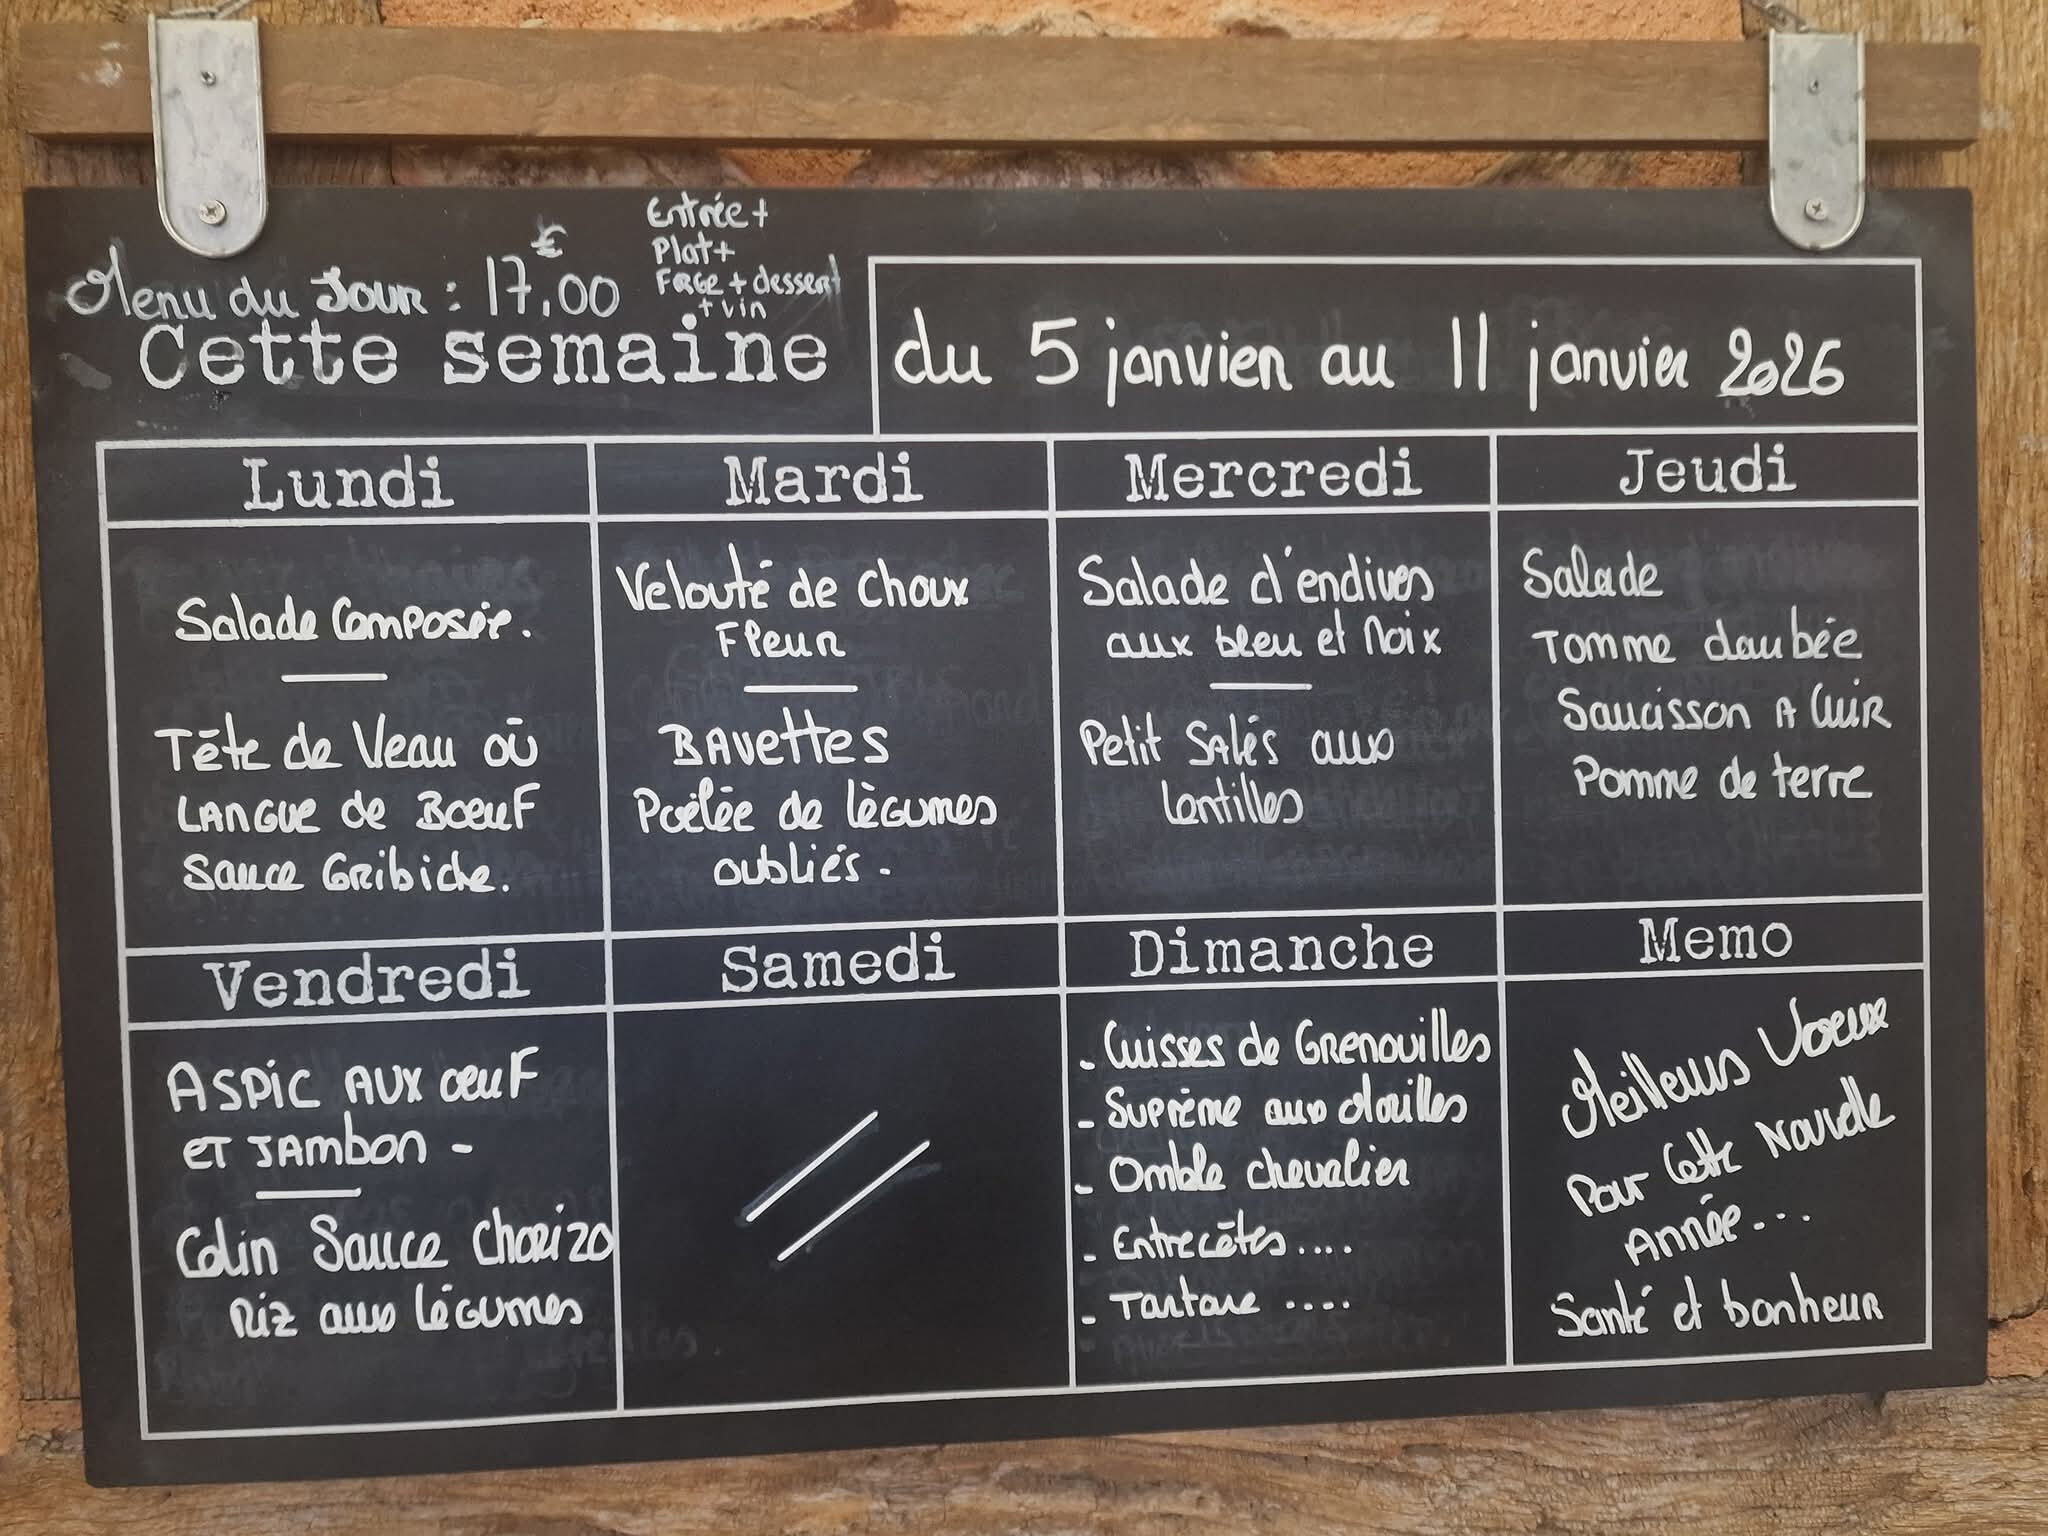 Menu du Jour : 17,00 €
Entrée +
Plat +
FRGE + dessert
+ vin
Cette semaine
du 5 janvier au 11 janvier 2026
Lundi
Salade Composée.
Tête de Veau où
LANGUE de BOEUF
Sauce GRibiche.
Mardi
Velouté de Choux
Fleur
BAVETTES
Poêlée de lègumes
oubliés.
Mercredi
Salade d'endives
aux bleu et Noix
Petit SALÉS aux
lentilles
Jeudi
Salade
Tomme daubée
Saucisson A CuiR
Pomme de terre
Vendredi
ASPIC AUX œuF
ET JAMBON -
Colin Sauce Chorizo
Riz aux légumes
Samedi
Dimanche
- Cuisses de GRENOUILLES
- Suprème aux Morilles
- Omble chevalier
- Entrecôtes ....
- Tartare ....
Memo
Meilleurs Voeux
Pour Cette Nouvelle
Année...
Santé et bonheur